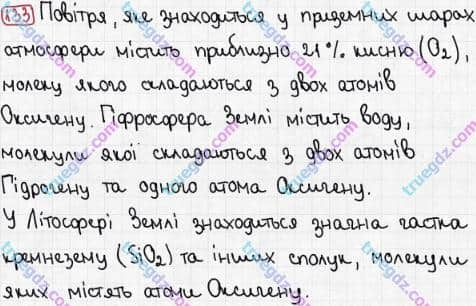 133 Повітря, яке знаходиться у приземних шарах
атмосфери містить приблизно 21% кисню (O₂),
молеку якого складаються з двох атомів
Оксигену. Гідросфера Землі містить воду,
молекули якої складаються з двох атомів
Гідрогену та одного атома Оксигену.
У Літосфері Землі знаходиться значна частка
кремнезему (SiO₂) та інших сполук, молекули
яких містять атоми Оксигену.
truegdz.com